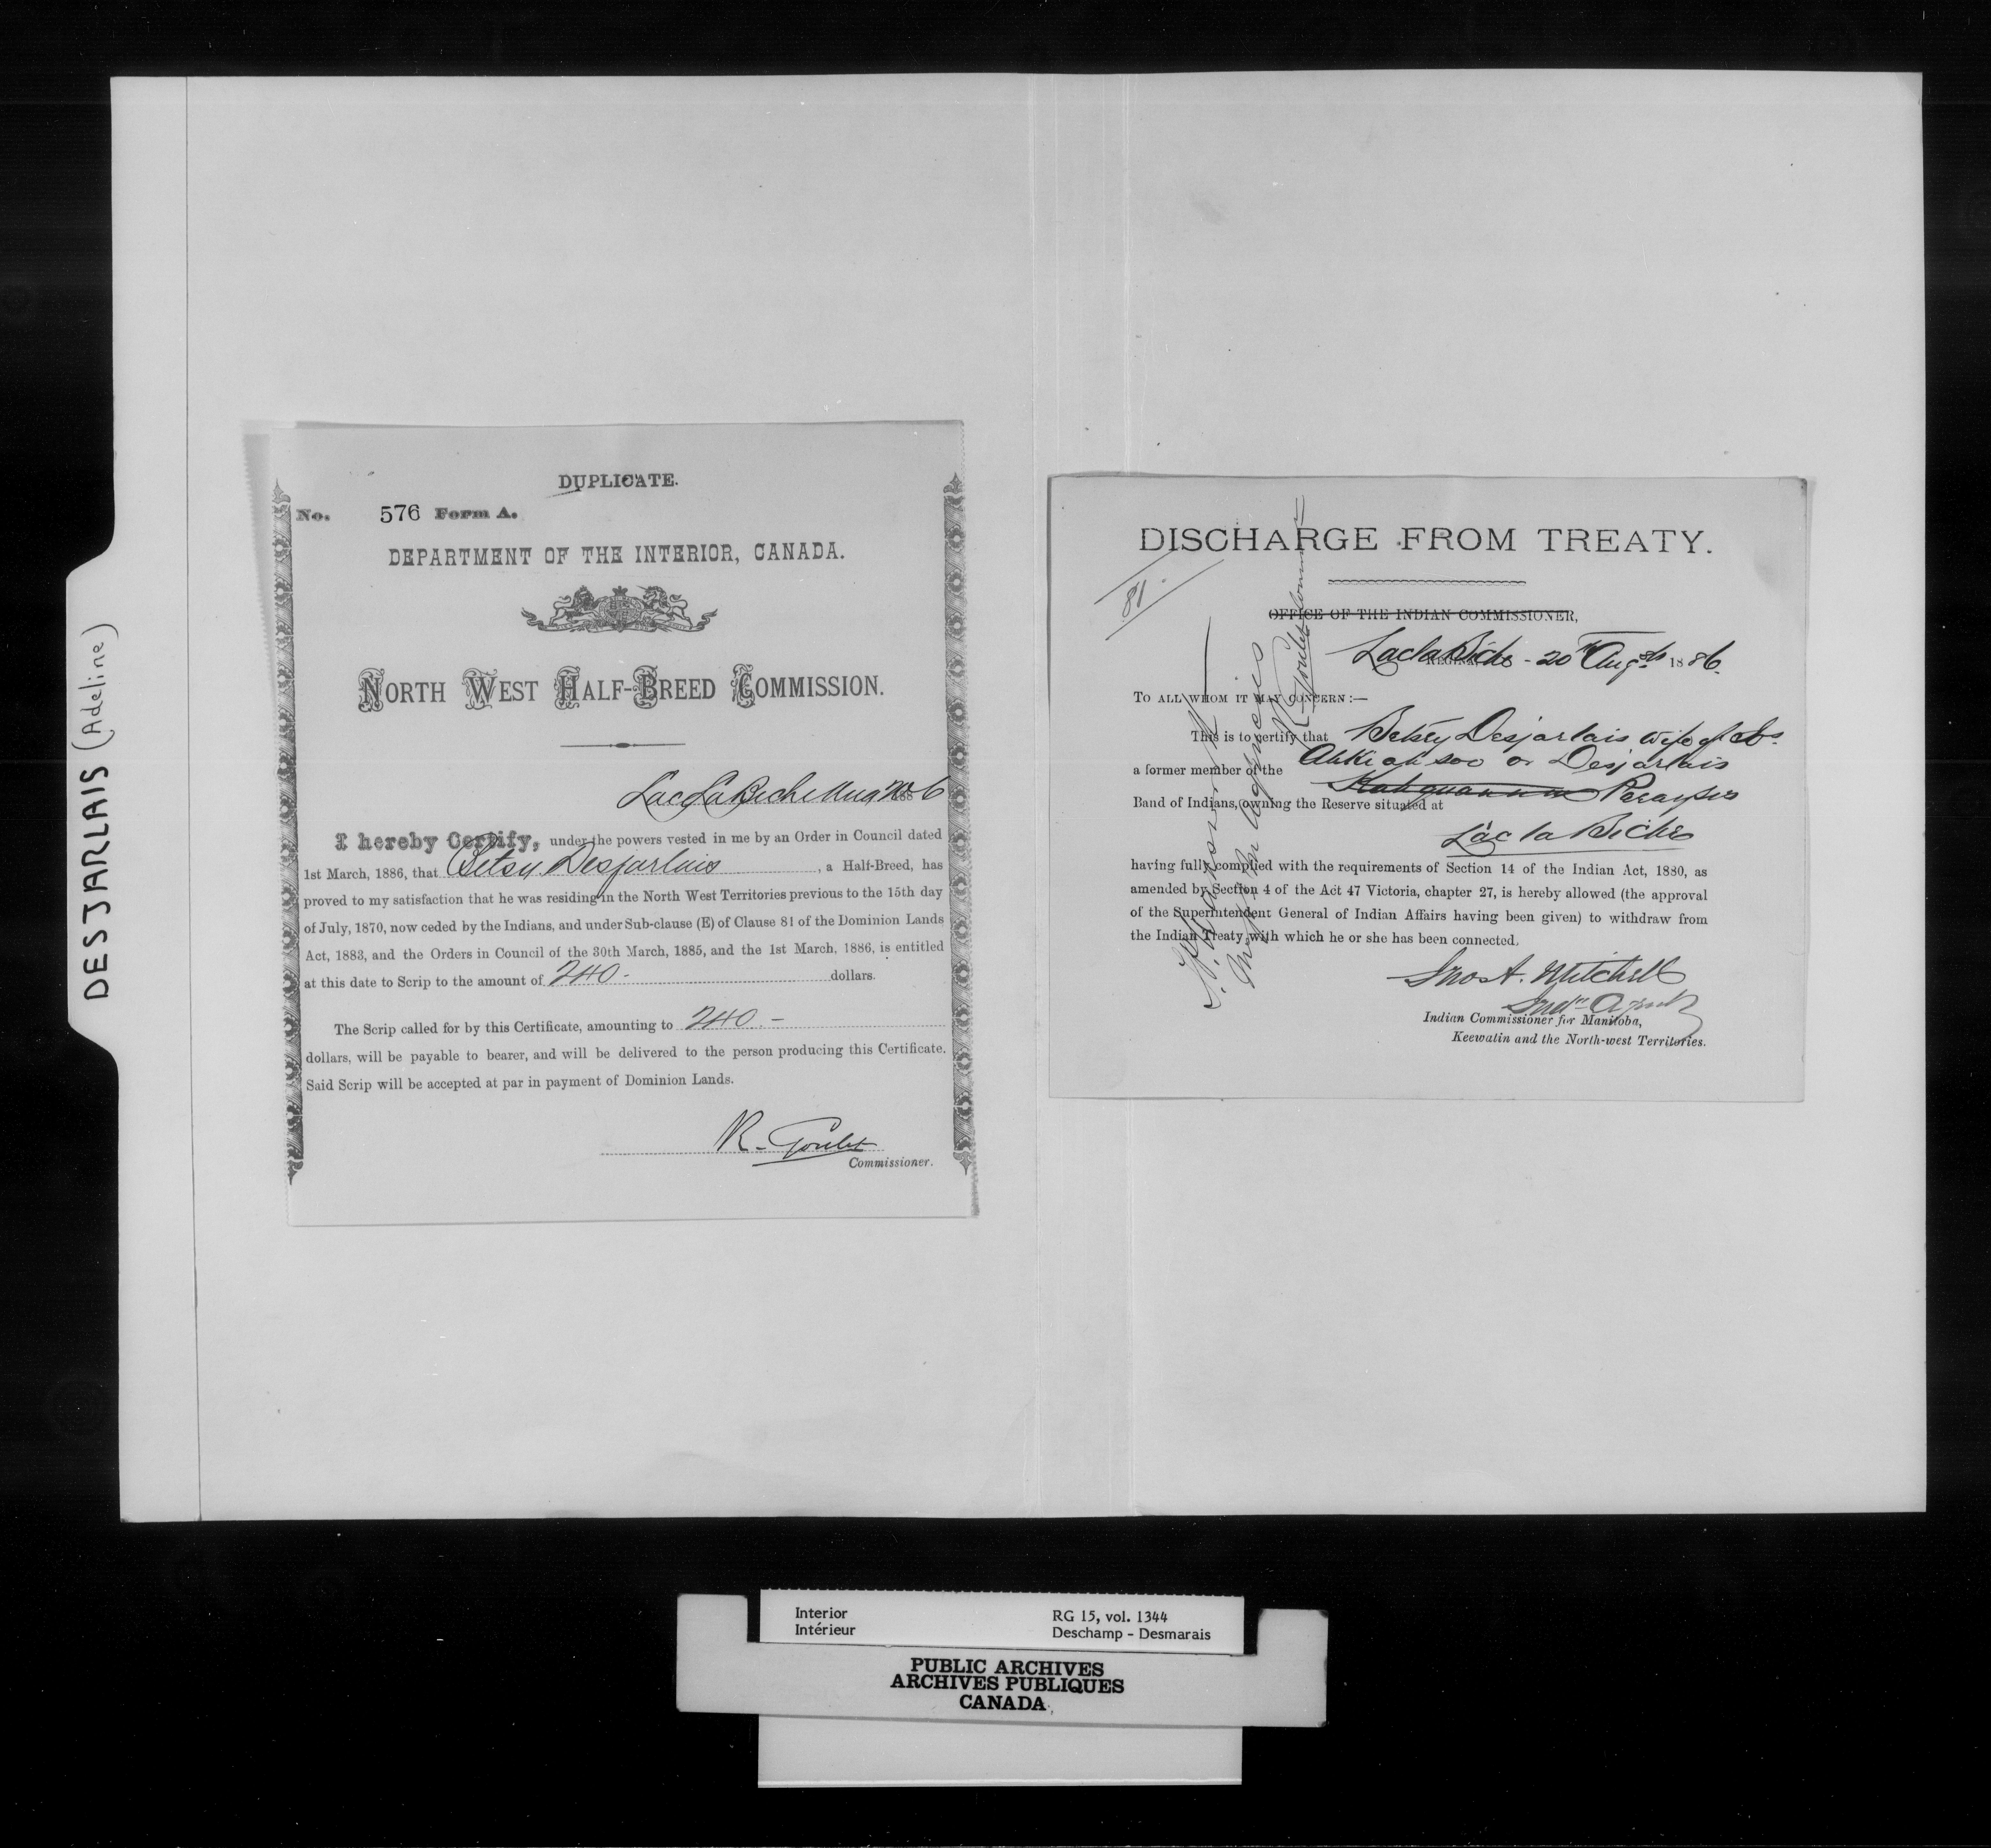 DESJARLAIS (Adeline)
DUPLICATE.
No. 576 Form A.
DEPARTMENT OF THE INTERIOR, CANADA.
NORTH WEST HALF-BREED COMMISSION.
Lac La Biche Aug 20 1886
I hereby Certify, under the powers vested in me by an Order in Council dated
1st March, 1886, that Betsy Desjarlais, a Half-Breed, has
proved to my satisfaction that he was residing in the North West Territories previous to the 15th day
of July, 1870, now ceded by the Indians, and under Sub-clause (E) of Clause 81 of the Dominion Lands
Act, 1883, and the Orders in Council of the 30th March, 1885, and the 1st March, 1886, is entitled
at this date to Scrip to the amount of 240.- dollars.
The Scrip called for by this Certificate, amounting to 240.-
dollars, will be payable to bearer, and will be delivered to the person producing this Certificate.
Said Scrip will be accepted at par in payment of Dominion Lands.
R. Goulet
Commissioner.
DISCHARGE FROM TREATY.
81
OFFICE OF THE INDIAN COMMISSIONER,
Lac la Biche - 20th Augst 1886.
TO ALL WHOM IT MAY CONCERN:—
This is to certify that Betsey Desjarlais wife of
a former member of the Ahkeah soo or Desjarlais
Band of Indians, owning the Reserve situated at
Lac la Biche
having fully complied with the requirements of Section 14 of the Indian Act, 1880, as
amended by Section 4 of the Act 47 Victoria, chapter 27, is hereby allowed (the approval
of the Superintendent General of Indian Affairs having been given) to withdraw from
the Indian Treaty with which he or she has been connected.
Jno A. Mitchell
Indn Agent
Indian Commissioner for Manitoba,
Keewatin and the North-west Territories.
R. Goulet
Interior RG 15, vol. 1344
Intérieur Deschamp - Desmarais
PUBLIC ARCHIVES
ARCHIVES PUBLIQUES
CANADA